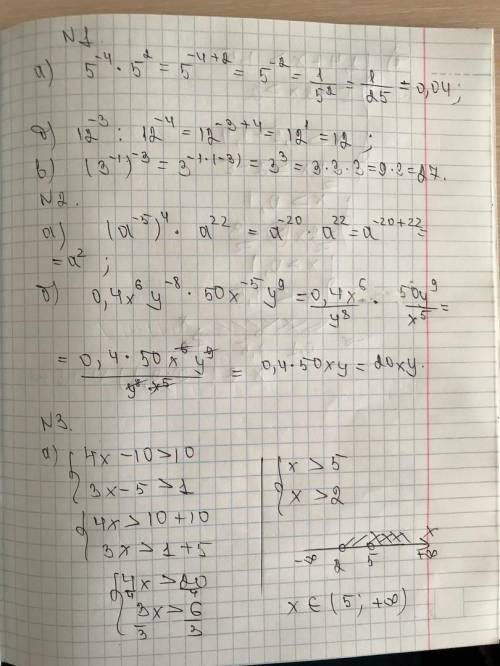 N1.
а) 5^{-4} · 5^{2} = 5^{-4+2} = 5^{-2} = \frac{1}{5^{2}} = \frac{1}{25} = 0,04;
б) 12^{-3} : 12^{-4} = 12^{-3+4} = 12^{1} = 12;
в) (3^{-1})^{-3} = 3^{-1·(-3)} = 3^{3} = 3·3·3 = 9·3 = 27.
N2.
а) (a^{-5})^{4} · a^{22} = a^{-20} · a^{22} = a^{-20+22} =
= a^{2};
б) 0,4x^{6}y^{-8} · 50x^{-5}y^{9} = \frac{0,4x^{6}}{y^{8}} · \frac{50y^{9}}{x^{5}} =
= \frac{0,4·50x^{6}y^{9}}{y^{8}·x^{5}} = 0,4·50xy = 20xy.
N3.
а) { 4x-10>10
3x-5>1
{ 4x>10+10
3x>1+5
{ \frac{4x}{4}>\frac{20}{4}
\frac{3x}{3}>\frac{6}{3}
{ x>5
x>2
x
-∞ 2 5 +∞
x ∈ (5; +∞)